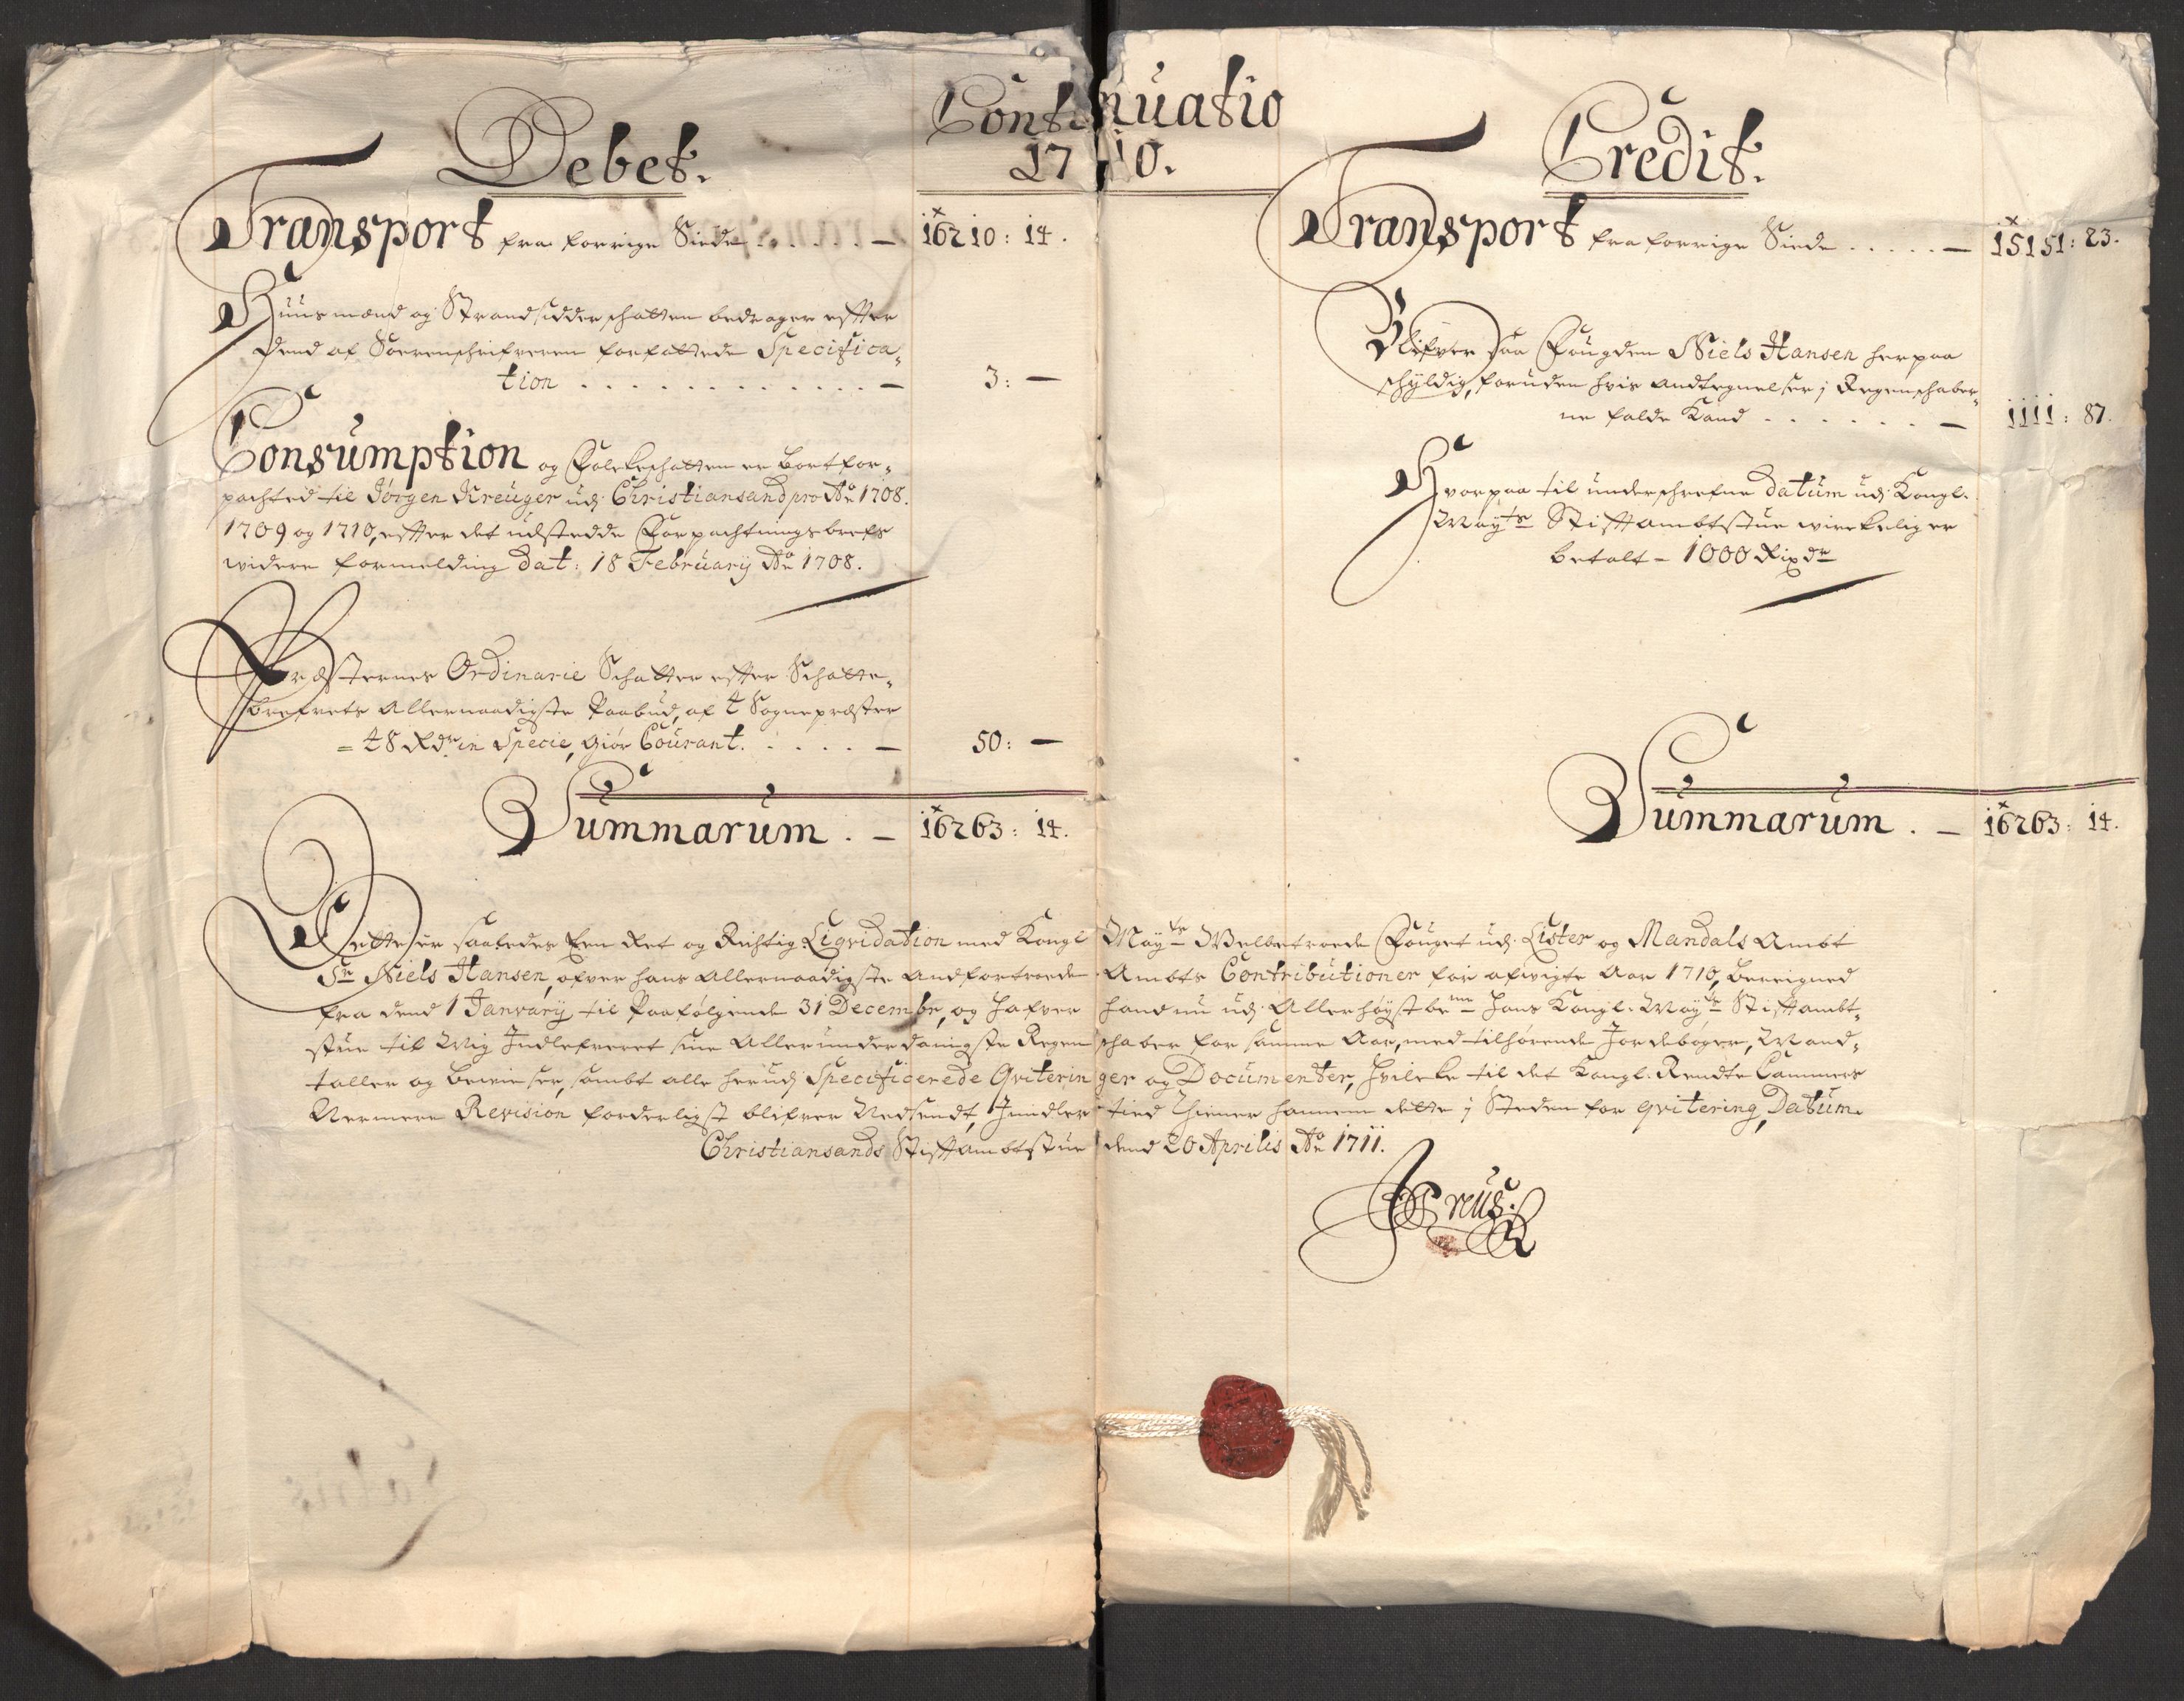 Continuatio
1710.
Debet.
Transport fra forrige Siede . . . . . . — 16210 : 14.
Huusmænd og Strandsidder schatten bedrager effter
dend af Sorenschrifveren forfattede Specifica-
tion . . . . . . . . . . . . — 3 : —
Consumption og Folckeschatten er bortfor-
pachted til Jørgen Kreuger udj Christiansand pro Ao 1708.
1709 og 1710, effter det udstedde Forpachtningsbrefs
widere formelding dat: 18 February Ao 1708.
Præsternes Ordinarie Schatter effter Schatte-
brefvets Allernaadigste Paabud, af 4 Sognepræster
= 48 Rdr in Specie, giør Courant. . . . . . — 50 : —
Summarum . — 16263 : 14.
Credit.
Transport fra forrige Siede . . . . . — 15151 : 23.
Blifver saa Fougden Niels Hansen herpaa
schyldig, foruden hvis Andtegnelser j Regenschaber-
ne falde Kand . . . . . . . — 1111 : 87.
Hvorpaa til underschrefne datum udj Kongl.
Mayts Stiftambtstue wirckelig er
betalt - 1000 Rixdr
Summarum . — 16263 : 14.
Dette er saaledes Een Ret og Rigtig Liqvidation med Kongl Mayts Welbetroede Fouget udj Lister og Mandals Ambt
Sr Niels Hansen, ofver hans Allernaadigste Andfortroede Ambts Contributioner for afvigte Aar 1710, bereigned
fra dend 1 January til Paafølgende 31 Decembr, og hafver hand nu udj Allerhøystbemte Hans Kongl. Mayts Stiftambt-
stue til Mig Indlefveret sine Allerunderdanigste Regenschaber for samme Aar, med tilhørende Jordebøger, Mand-
taller og beviser, sambt alle herudj Specificerede Qviteringer og Documenter, hvilcke til det Kongl. Rendte Cammers
Nermere Revision forderligst blifver Nedsendt, Imidlertied thiener hannem dette j Steden for qvitering, Datum.
Christiansands Stiftambtstue dend 20 Aprilis Ao 1711.